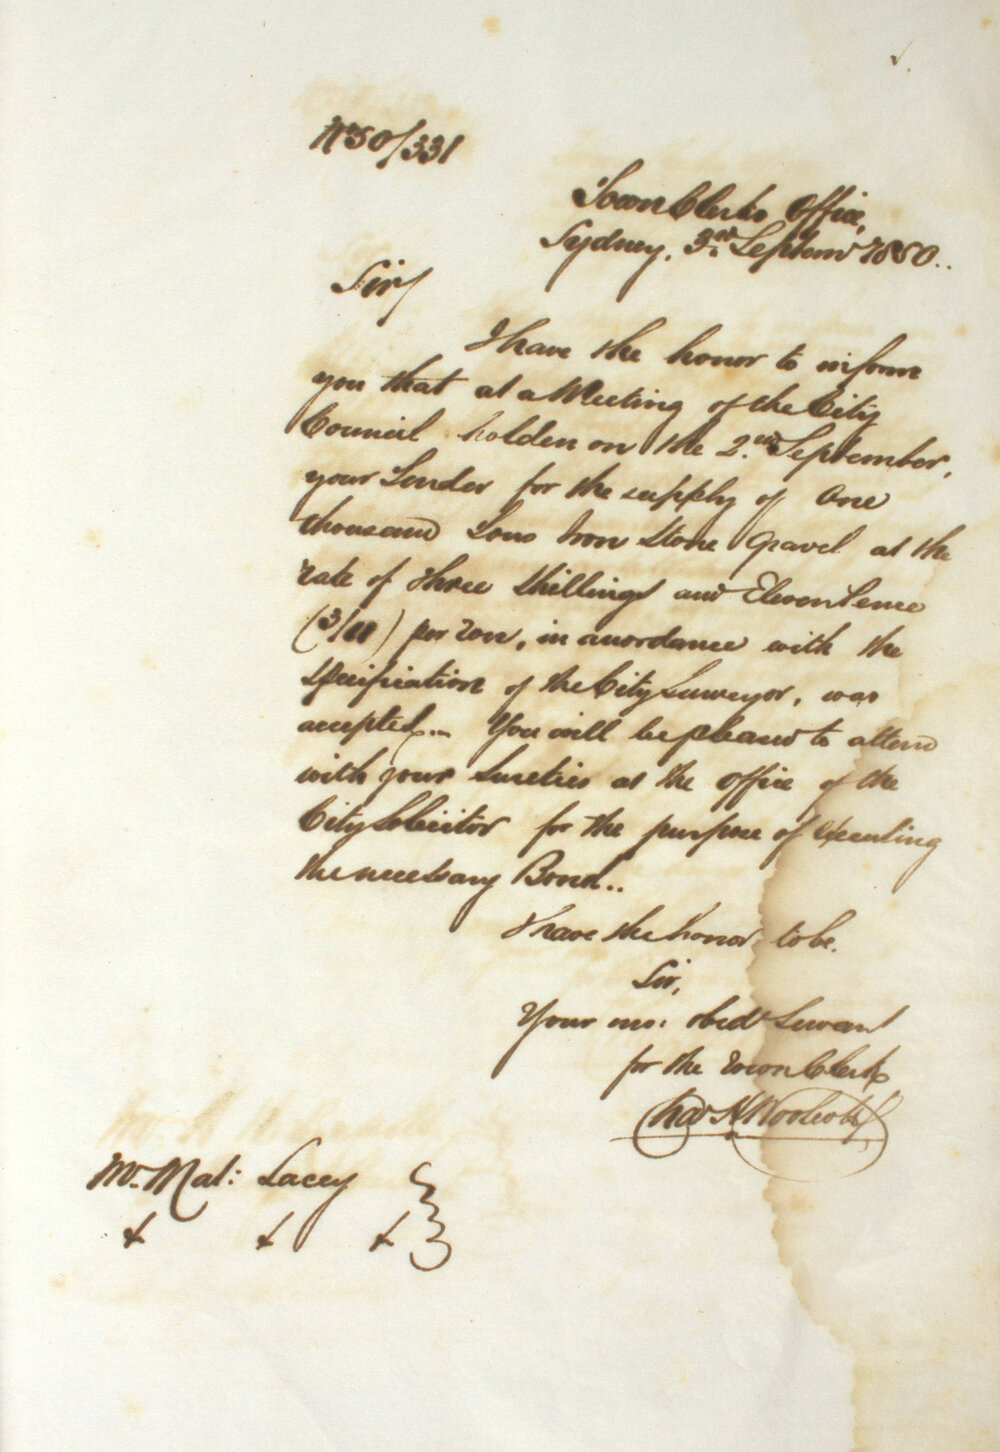 No 50/331
Town Clerks Office,
Sydney, 3rd Septemr 1850..
Sir/
I have the honor to inform
you that at a Meeting of the City
Council holden on the 2nd September,
your Tender for the supply of One
thousand Tons Iron Stone Gravel at the
rate of three Shillings and Eleven Pence
(3/11) per Ton, in accordance with the
Specification of the City Surveyor, was
accepted... You will be pleased to attend
with your Sureties at the Office of the
City Solicitor for the purpose of executing
the necessary Bond..
I have the honor to be.
Sir,
Your mo: obedt Servant
for the Town Clerk
Chas H Woolcott
Mr. Mal: Lacey